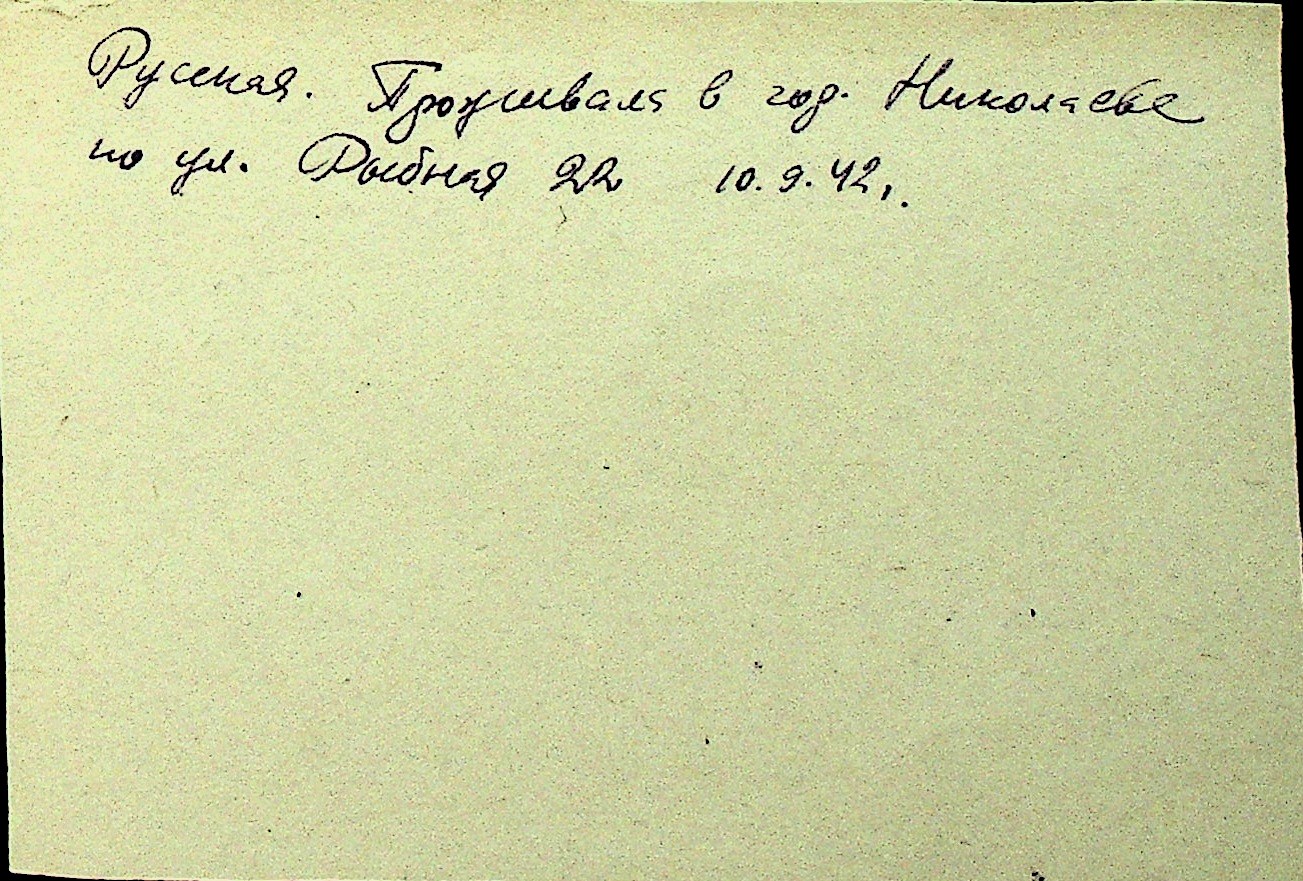 Русская. Проживала в гор. Николаеве
по ул. Рыбная 22 10.9.42.